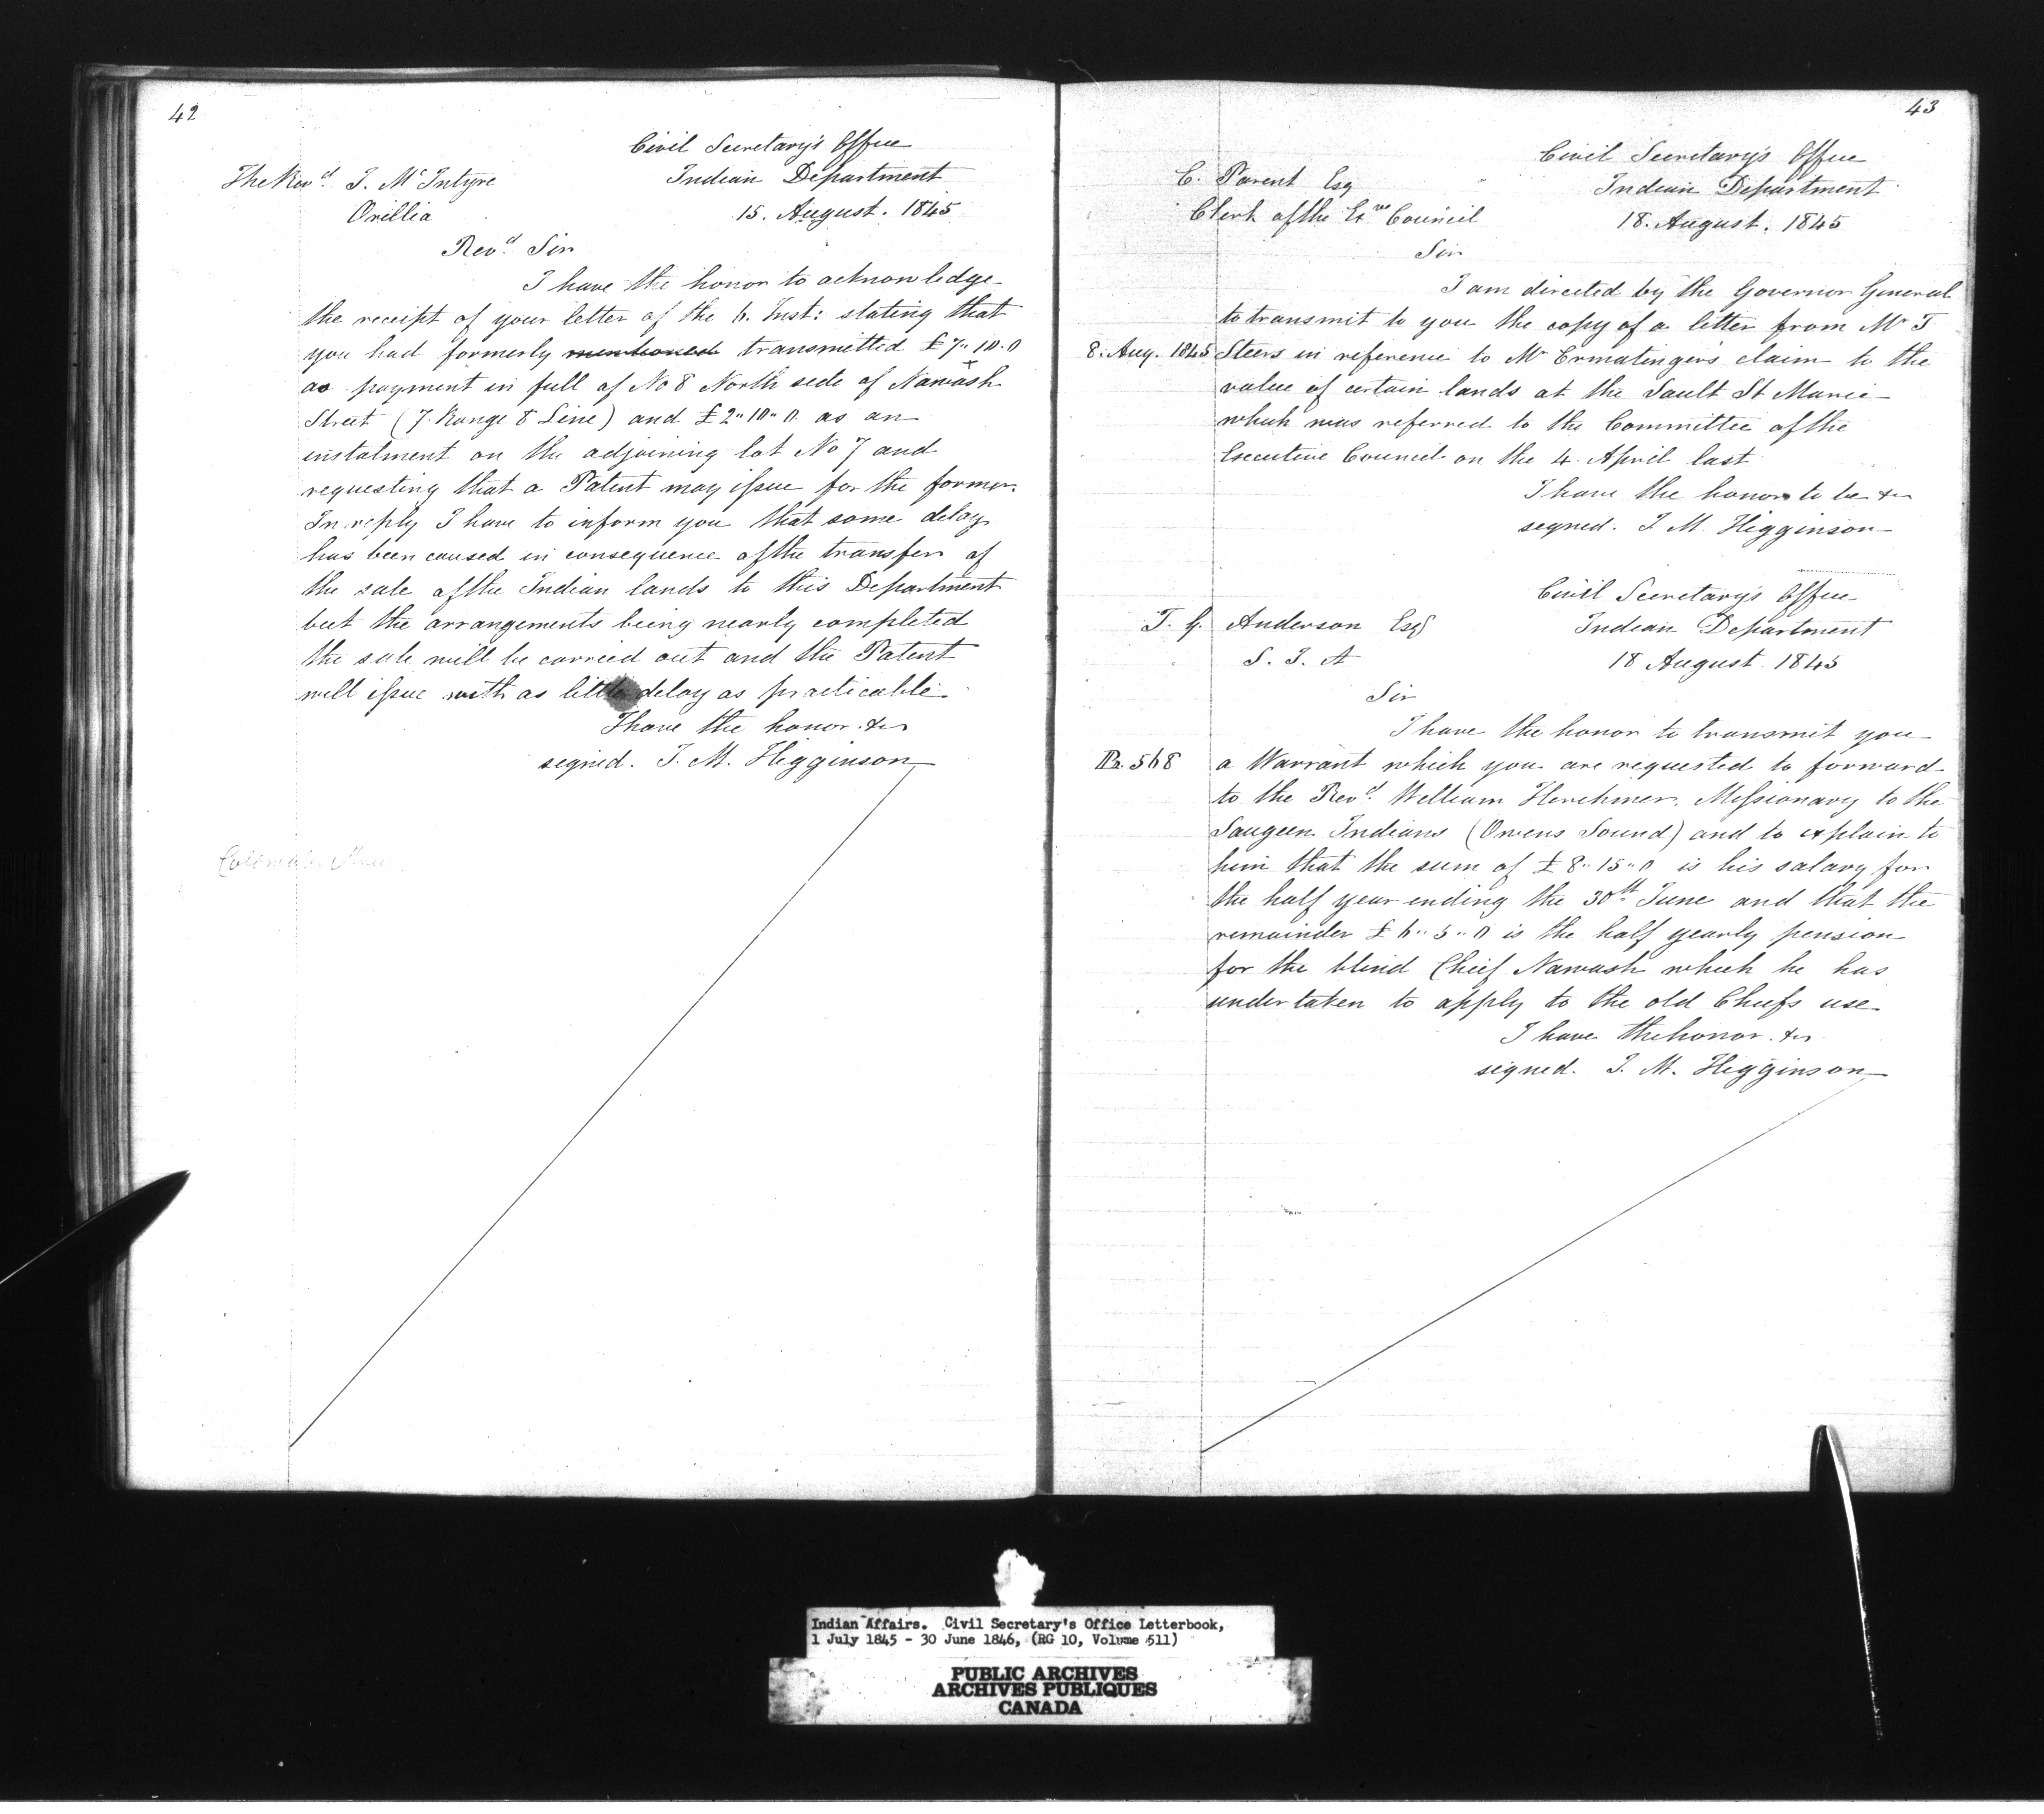 42
Civil Secretary's Office
The Revd. J. McIntyre
Indian Department
Orillia
15. August. 1845
Revd. Sir
I have the honor to acknowledge
the receipt of your letter of the 6. Inst: stating that
you had formerly mentioned transmitted £7"10.0
as payment in full of No 8 North side of Nawash
Street (7. Range 8 Line) and £2"10"0 as an
instalment on the adjoining lot No 7 and
requesting that a Patent may issue for the former.
In reply I have to inform you that some delay
has been caused in consequence of the transfer of
the sale of the Indian lands to this Department
but the arrangements being nearly completed
the sale will be carried out and the Patent
will issue with as little delay as practicable.
I have the honor &c
signed. J. M. Higginson
43
Civil Secretary's Office
E. Parent Esq
Indian Department
Clerk of the Exve Council
18. August. 1845
Sir
I am directed by the Governor General
to transmit to you the copy of a letter from Mr T
8. Aug. 1845 Steers in reference to Mr Ermatinger's claim to the
value of certain lands at the Sault St Marie
which was referred to the Committee of the
Executive Council on the 4. April last
I have the honor to be &c
signed. J. M. Higginson
Civil Secretary's Office
T. G. Anderson Esq
Indian Department
S. I. A
18 August 1845
Sir
I have the honor to transmit you
568 a Warrant which you are requested to forward
to the Revd. William Herchmer. Missionary to the
Saugeen Indians (Owens Sound) and to explain to
him that the sum of £8"15"0 is his salary for
the half year ending the 30th June and that the
remainder £6"5"0 is the half yearly pension
for the blind Chief Nawash which he has
undertaken to apply to the old Chiefs use
I have the honor. &c
signed. J. M. Higginson
Indian Affairs. Civil Secretary's Office Letterbook,
1 July 1845 - 30 June 1846, (RG 10, Volume 511)
PUBLIC ARCHIVES
ARCHIVES PUBLIQUES
CANADA